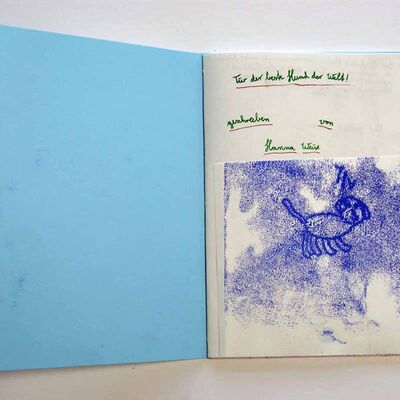 Tür der beste Hund der Welt!
geschrieben von
Hanna Weise